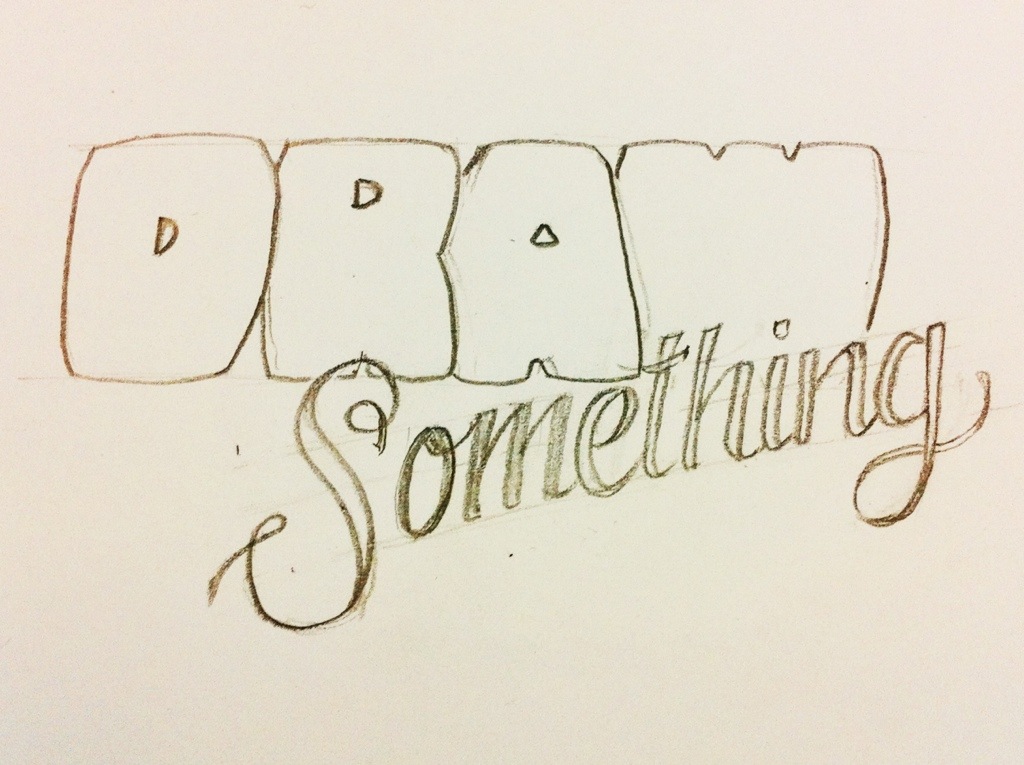 DRAW
Something